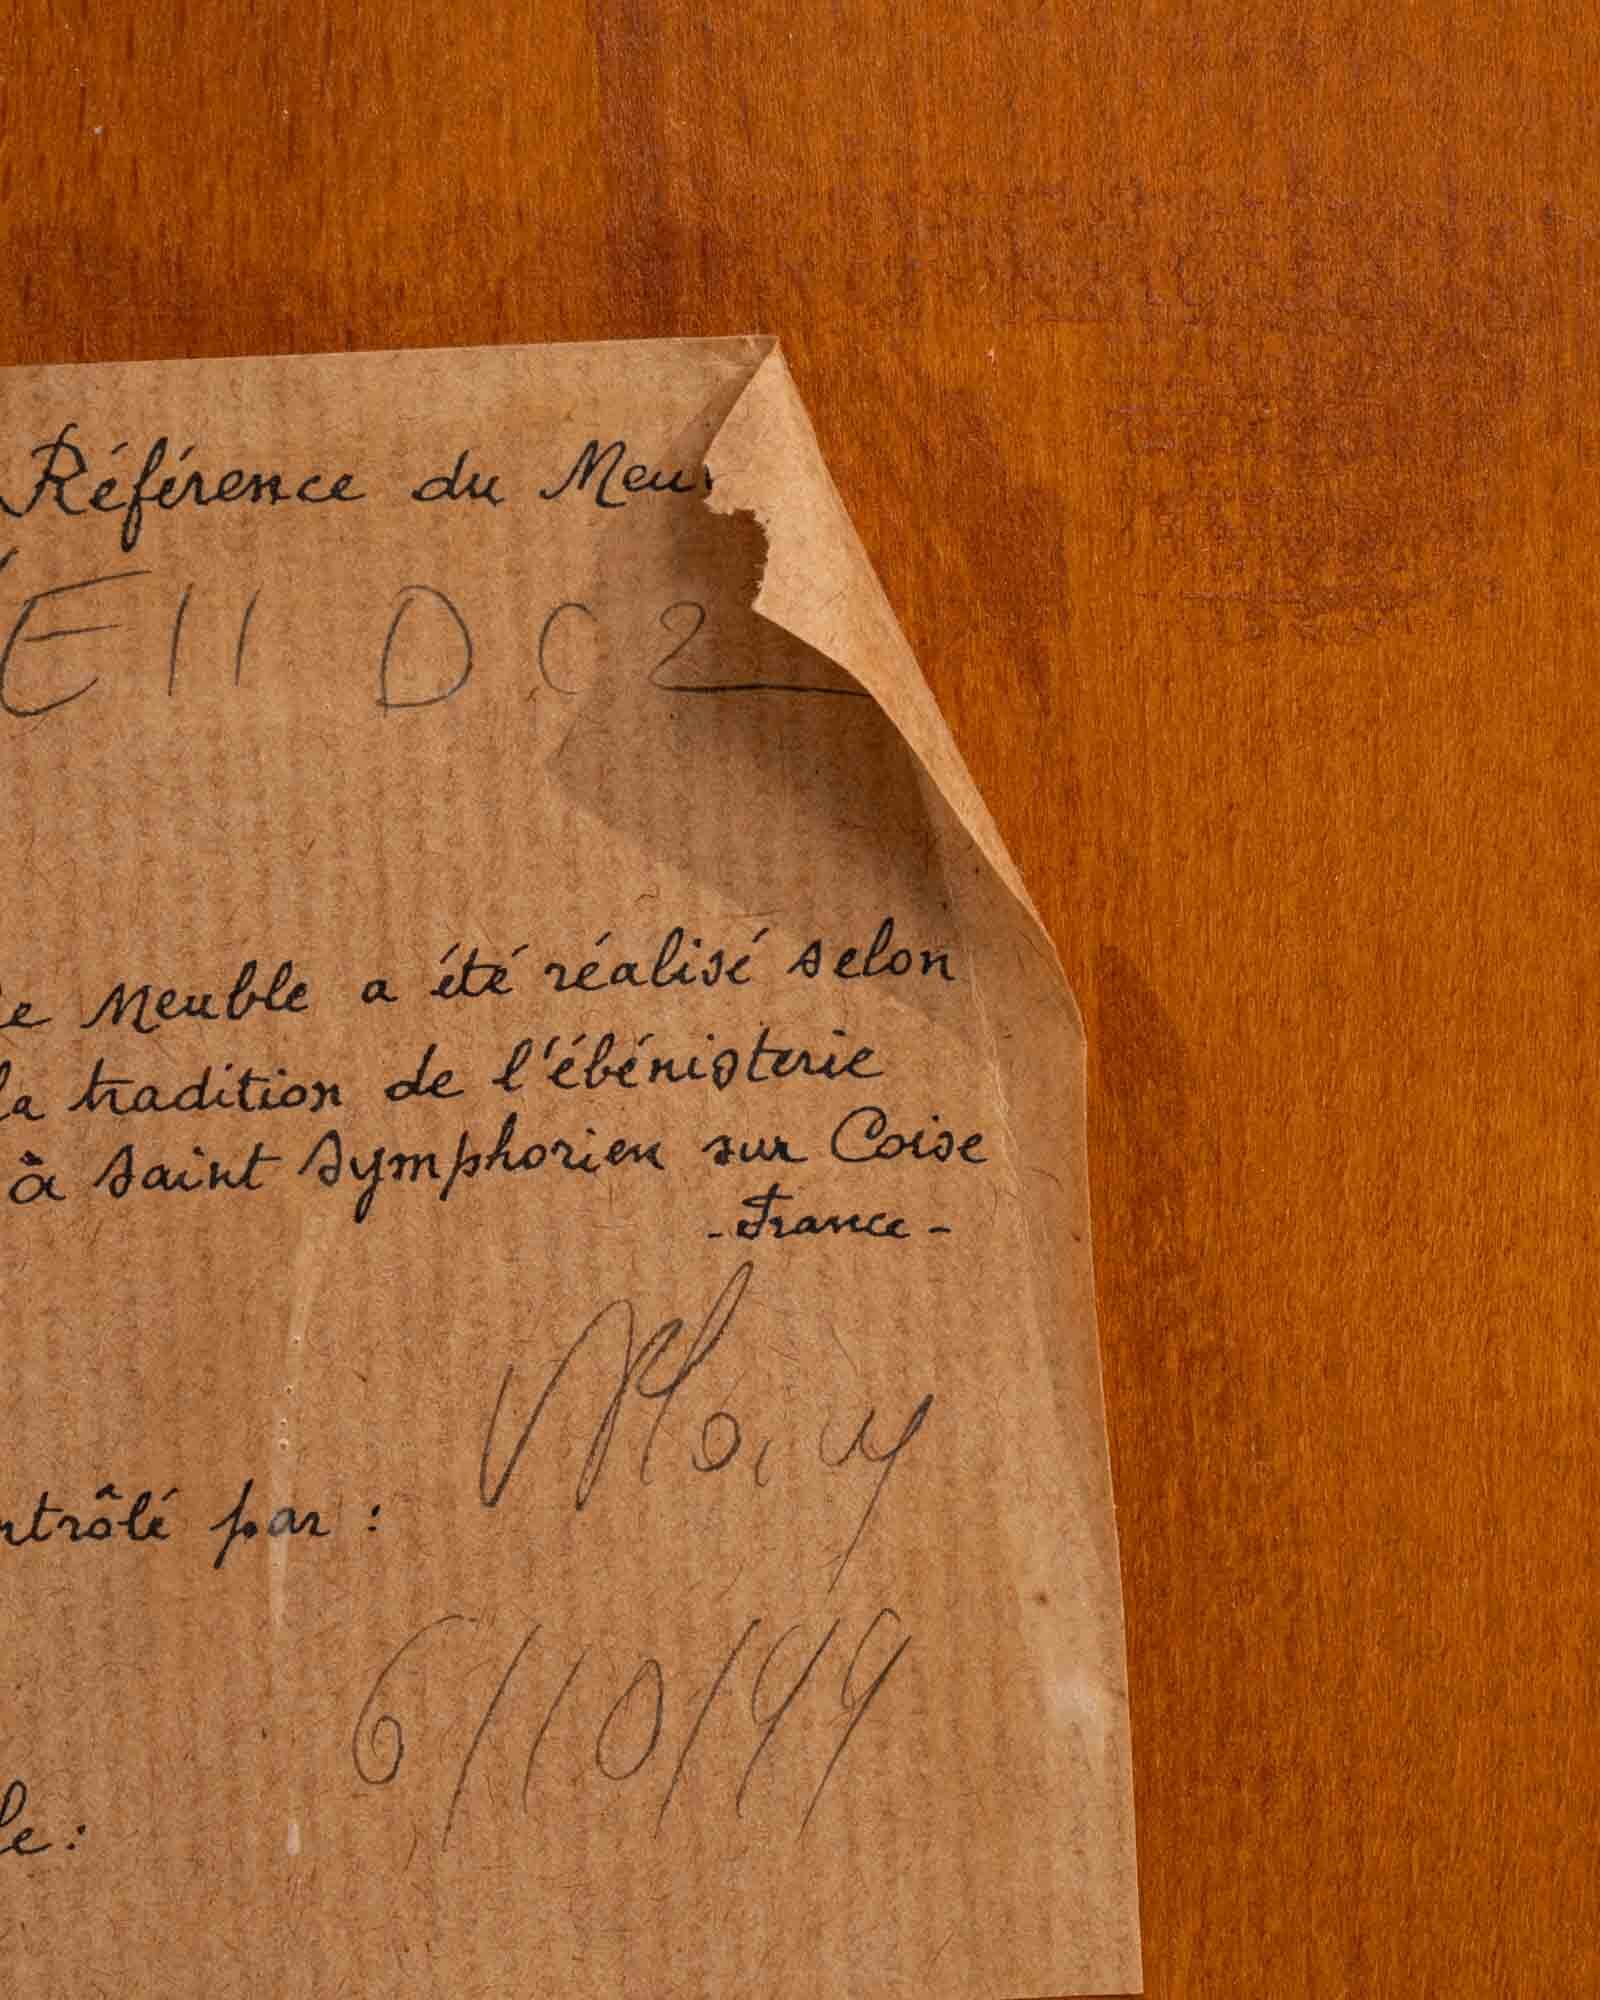 Référence du Meu
E11 DC2
le Meuble a été réalisé selon
la tradition de l'ébénisterie
à Saint Symphorien sur Coise
- France -
ntrôlé par :
6/10/99
le :